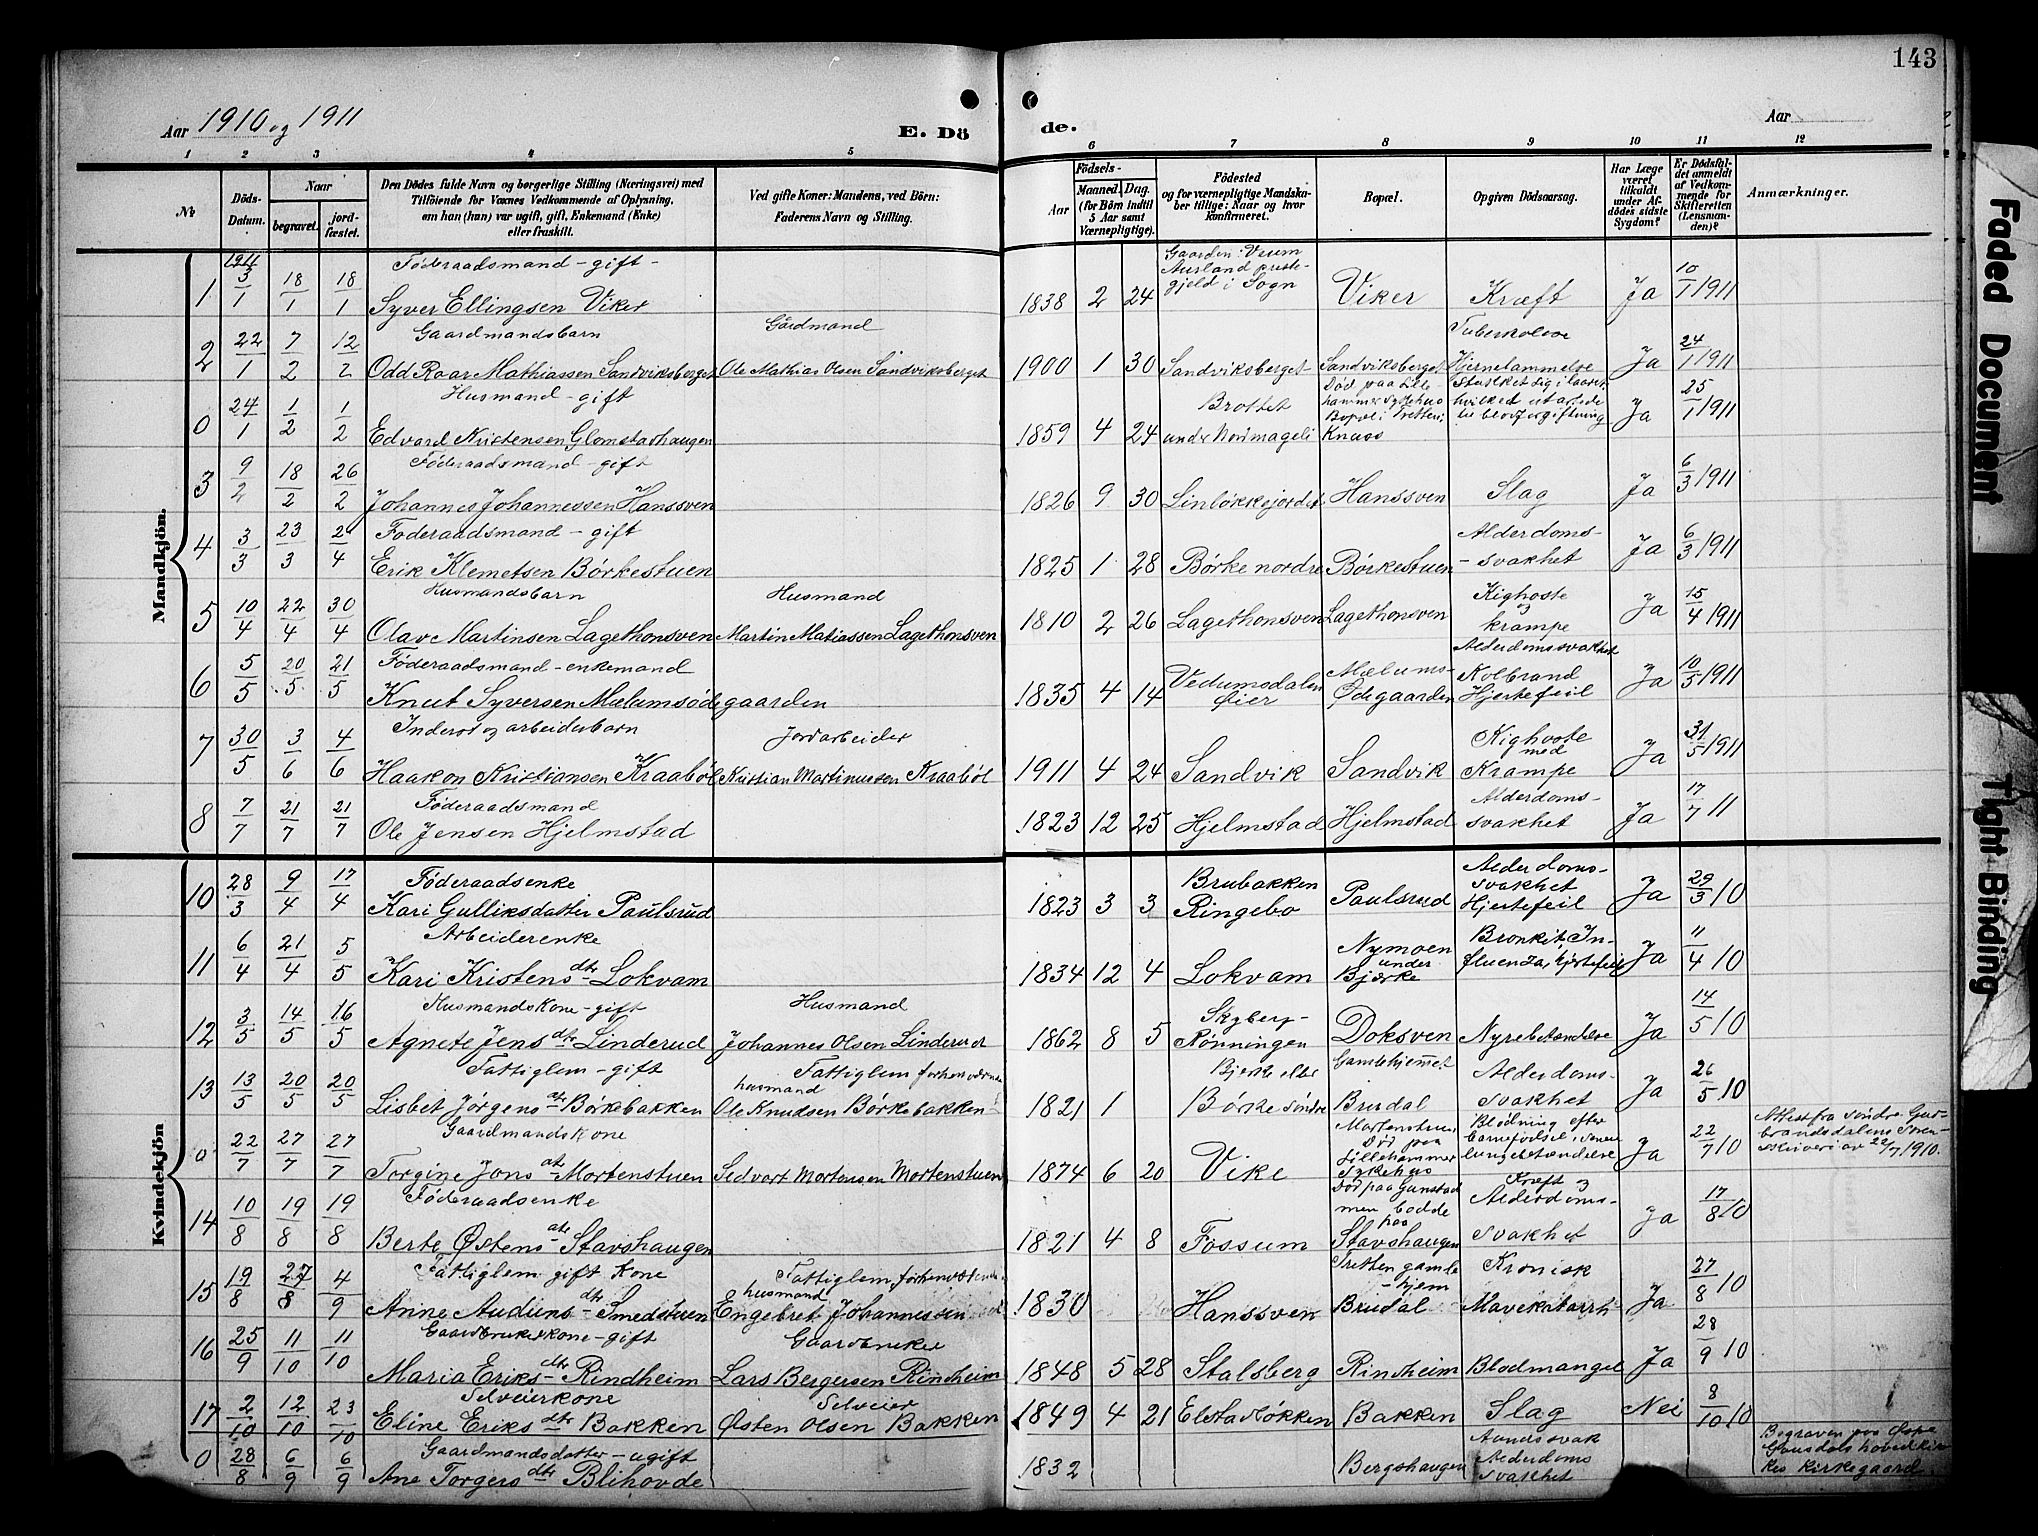 143
Aar 1910 og 1911
E. Dö de.
Aar
1 2 3 4 5 6 7 8 9 10 11 12
№
Döds-Datum.
Naar
begravet.
jord-fæstet.
Den Dödes fulde Navn og borgerlige Stilling (Næringsvei) med
Tilföiende for Voxnes Vedkommende af Oplysning,
om han (hun) var ugift, gift, Enkemand (Enke)
eller fraskilt.
Ved gifte Koner: Mandens, ved Börn:
Faderens Navn og Stilling.
Födsels-
Aar
Maaned. Dag.
(for Börn indtil
5 Aar samt
Værnepligtige).
Födested
og for værnepligtige Mandska-
ber tillige: Naar og hvor
konfirmeret.
Bopæl.
Opgiven Dödsaarsag.
Har Læge
været
tilkaldt
under Af-
dödes sidste
Sygdom?
Er Dödsfal-
det anmeldt
af Vedkom-
mende for
Skifteretten
(Lensman-
den)?
Anmærkninger.
Mandkjön.
1911
Föderaadsmand - gift -
Gaarden: Veum
Aurland preste-
gjeld i Sogn
1 3/1 18/1 18/1 Syver Ellingsen Viker 1838 2 24 Viker Kræft Ja 10/1 1911
Gaardmandsbarn Gårdmand Tuberkoløse
2 22/1 7/2 12/2 Odd Roar Mathiassen Sandviksberget Ole Mathias Olsen Sandviksberget 1900 1 30 Sandviksberget Sandviksberget Hjernelammelse Ja 24/1 1911
Husmand - gift Brottet
Död paa Lille
hammer Sykehus
Bopæl i Tretten:
Knuss
0 24/1 1/2 1/2 Edvard Kristensen Glomstadhaugen 1859 4 24 under Nordmageli Ja 25/1 1911
hvilket utartede
til blodforgiftning
Föderaadsmand - gift
3 9/2 18/2 26/2 Johannes Johannessen Hanssven 1826 9 30 Linløkkejordet Hanssven Slag Ja 6/3 1911
Foderaadsmand - gift Alderdoms-
4 3/3 23/3 2/4 Erik Klemetsen Börkestuen 1825 1 28 Börke nordre Börkestuen - svakhet Ja 6/3 1911
Husmandsbarn Husmand Kighoste
og
5 10/4 22/4 30/4 Olav Martinsen Lagethonsven Martin Matiassen Lagethonsven 1810 2 26 Lagethonsven Lagethonsven krampe Ja 15/4 1911
Föderaadsmand - enkemand Alderdomssvakhet
6 5/5 20/5 21/5 Knut Syversen Mælumsödegaarden 1835 4 14 Vedumsdalen Öier Mælums-Ödegaarden Kolbrand Hjertefeil Ja 10/5 1911
Inderst og arbeiderbarn Jordarbeider Kighoste
med
7 30/5 3/6 4/6 Haakon Kristiansen Kraaböl Kristian Martinussen Kraaböl 1911 4 24 Sandvik Sandvik Krampe Ja 31/5 1911
Föderaadsmand Alderdoms-
8 7/7 21/7 21/7 Ole Jensen Hjelmstad 1823 12 25 Hjelmstad Hjelmstad svakhet Ja 17/7 11
Kvindekjön
Föderaadsenke Brubakken Alderdoms-
svakhet
10 28/3 9/4 17/4 Kari Gulliksdatter Paulsrud 1823 3 3 Ringebo Paulsrud Hjertefeil Ja 29/3 10
Arbeiderenke Nymoen
under
11 6/4 21/4 5/5 Kari Kristens dtr Lokvam 1834 12 4 Lokvam Bjerke Bronkit, In-
fluenza, hjertefeil Ja 11/4 10
Husmandskone - gift Husmand Skyberg-
12 3/5 14/5 16/5 Agnete Jens dtr Linderud Johannes Olsen Linderud 1862 8 5 Rönningen Doksven Nyrebetændelse Ja 14/5 10
Fattiglem - gift Fattiglem forhenværende
husmand Bjerke eller Gamlehjemmet Alderdoms-
13 13/5 20/5 20/5 Lisbet Jörgens dtr Börkebakken Ole Knudsen Börkebakken 1821 1 Börke söndre Brusdal svakhet Ja 26/5 10
Gaardmandskone
Mortenstuen
Död paa
Lillehammer
Sykehus
Blödning efter
barnefödsel, senere
lungebetændelse
0 22/7 27/7 27/7 Torgine Jons dtr Mortenstuen Sedvart Mortensen Mortenstuen 1874 6 20 Vike Ja 22/7 10
Attest fra söndre Gud-
brandsdalens Soren-
skriveri av 22/7 1910.
Föderaadsenke
Död paa Gunstad
men bodde
paa
Kræft og
Alderdoms-
14 10/8 19/8 19/8 Berte Östens dtr Stavshaugen 1821 4 8 Fossum Stavshaugen svakhet Ja 17/8 10
Fattiglem, gift Kone Fattiglem, forhenværende
husmand Tretten gamle
- hjem Kronisk
15 19/8 27/8 4/9 Anne Auduns dtr Smedstuen Engebret Johannessen 1830 Hanssven Brusdal Mavekatarrh Ja 27/8 10
Gaardbrukerkone - gift Gaardbruker
16 25/9 11/10 11/10 Maria Eriks dtr Rindheim Lars Bergersen Rindheim 1848 5 28 Stalsberg Rindheim Blodmangel Ja 28/9 10
Selveierkone Selveier
17 2/10 12/10 23/10 Eline Eriks dtr Bakken Östen Olsen Bakken 1849 4 21 Elstadlökken Bakken Slag Nei 8/10 10
Gaardmandsdatter - ugift
Aandssvak
Alderdoms
svakhet
0 28/8 6/9 6/9 Ane Torgers dtr Blihovde 1832 Bergshaugen
Begraven paa
Gausdals hovedkir
kes kirkegaard
Faded Document
Tight Binding